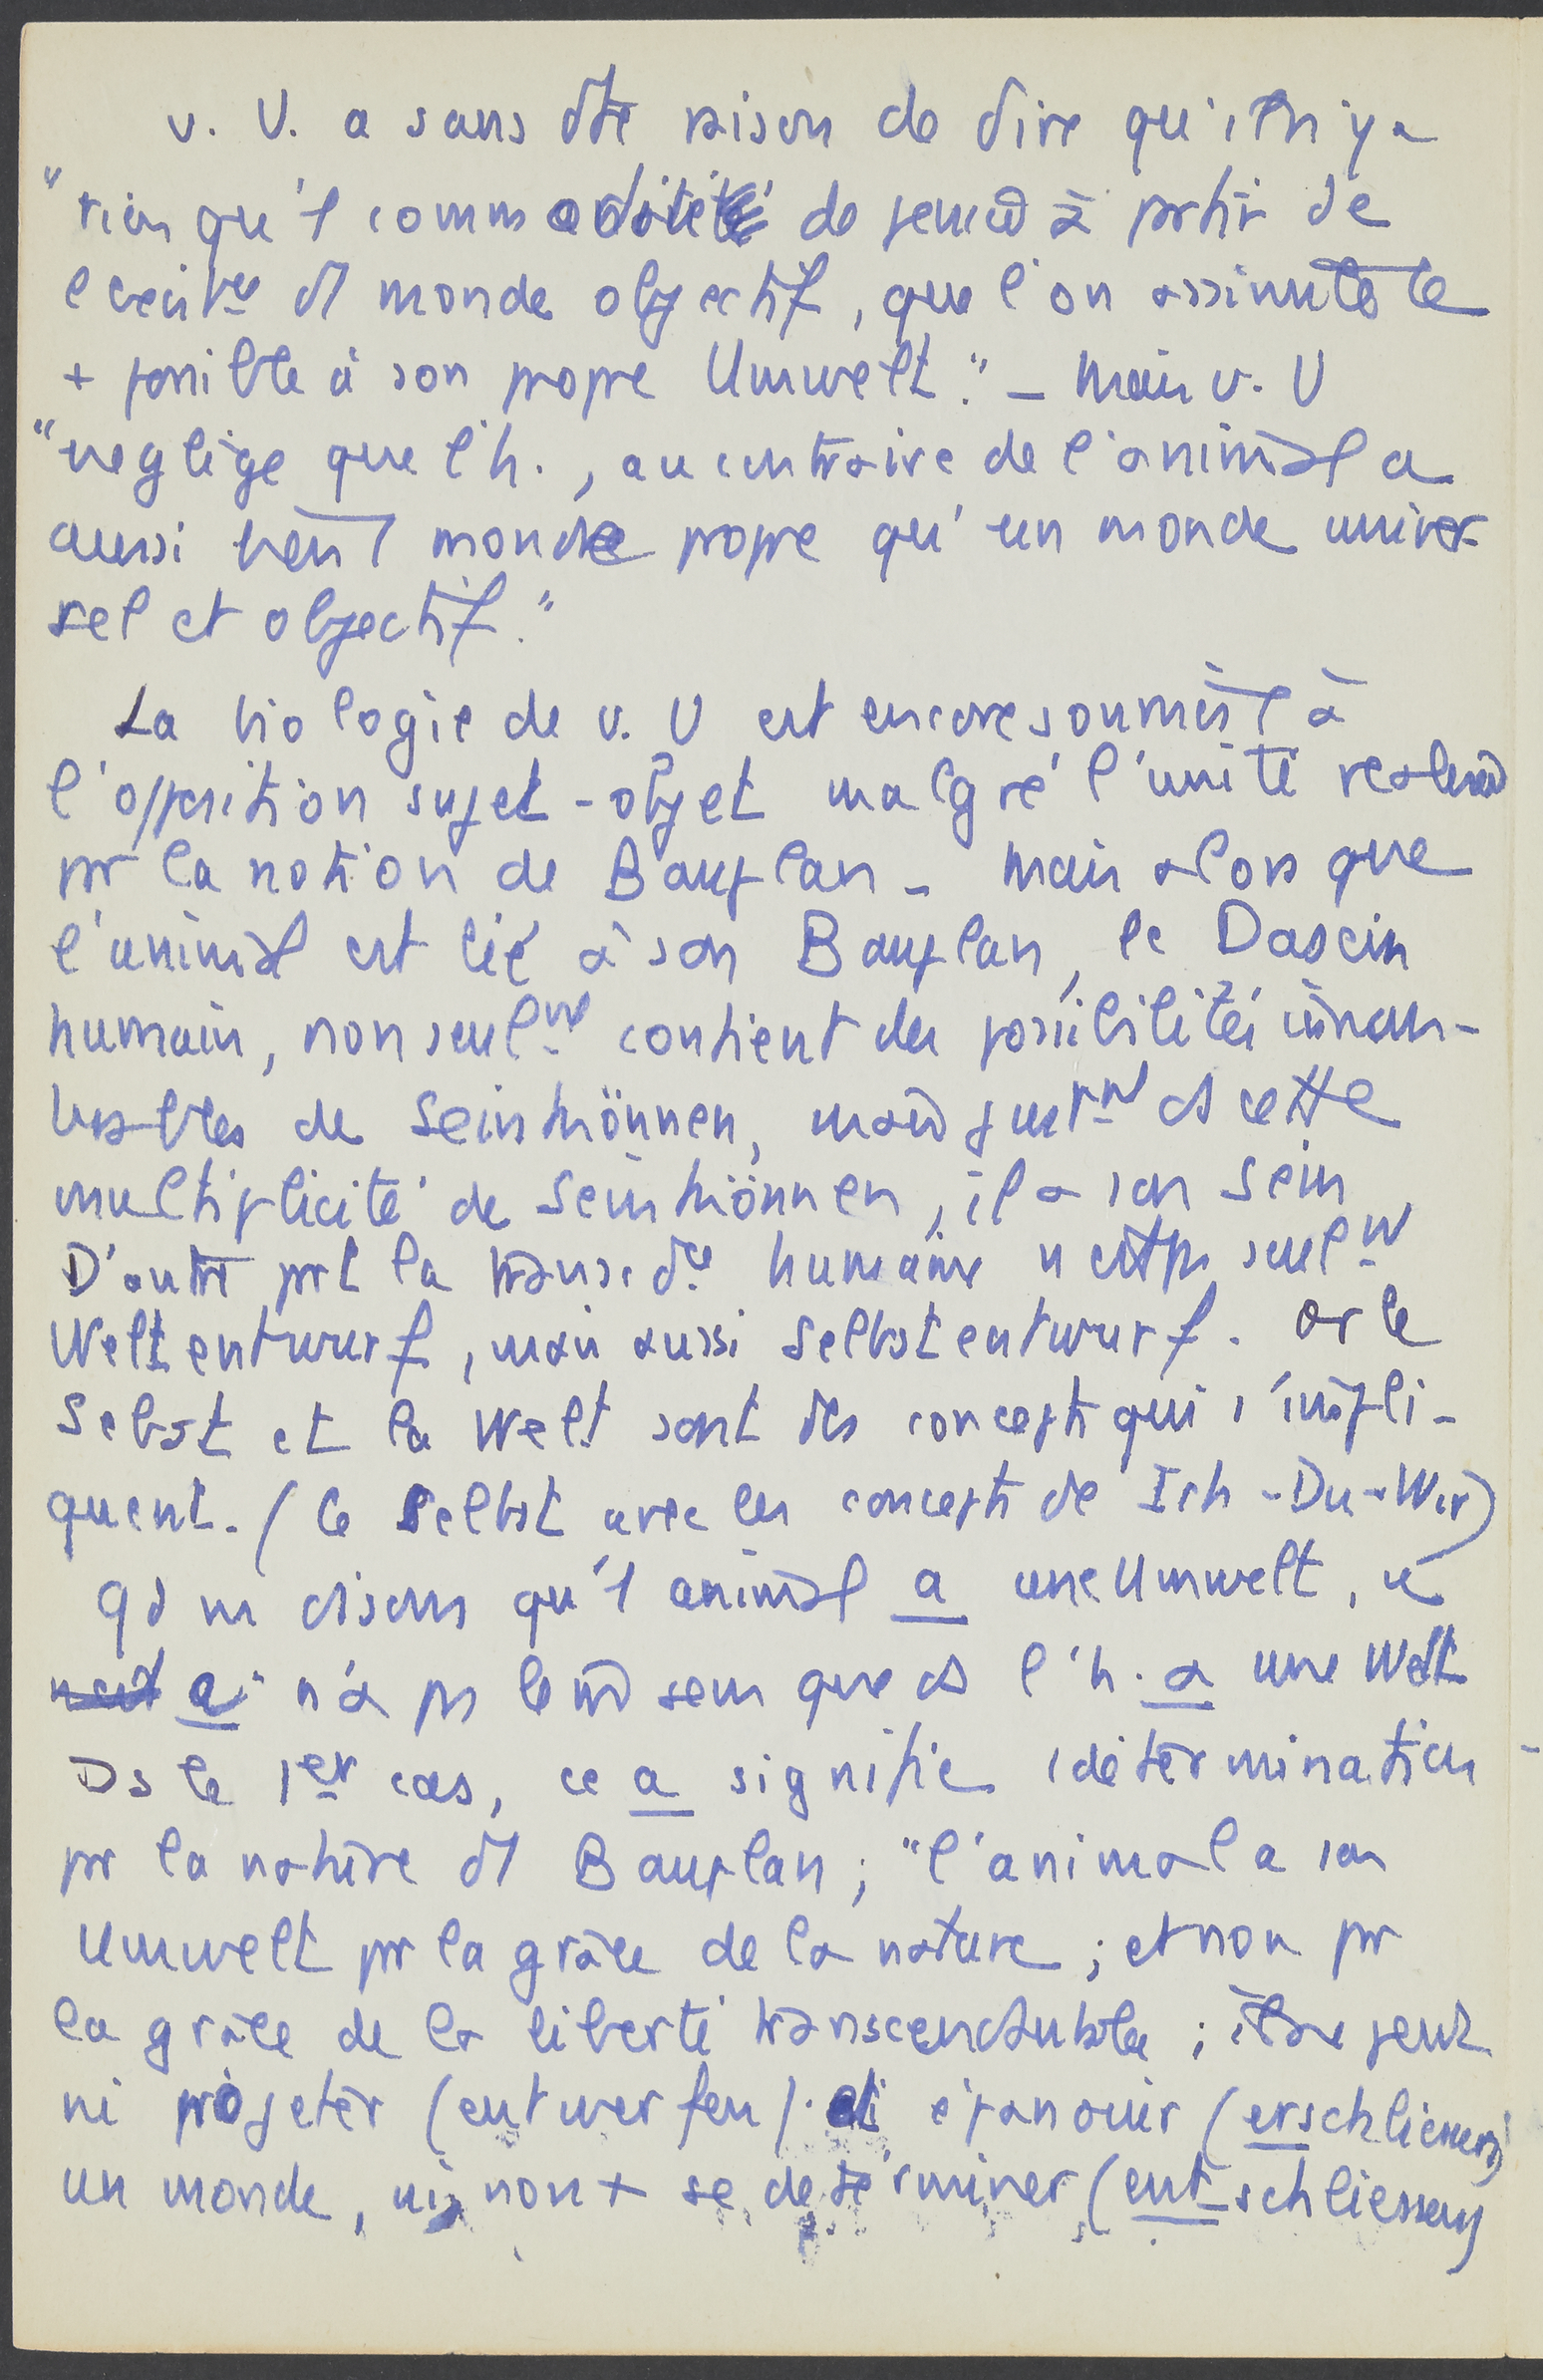 v. U. a sans dte raison de dire qu'il n'y a
"rien qu'1 commodité de pensée à partir de
l'existce d'1 monde objectif, que l'on assimile le
+ possible à son propre Umwelt." - Mais v. U
"neglige que l'h., au contraire de l'animal a
aussi bien 1 monde propre qu'un monde univer-
sel et objectif."
La biologie de v. U est encore soumise à
l'opposition sujet-objet malgré l'unité
pr la notion de Bauplan - Mais alors que
l'animal est lié à son Bauplan, le Dasein
humain, non seulnt contient des possibilités innom-
brables de Seinkönnen, mais justnt ds cette
multiplicité de Seinkönnen, il a son Sein
D'autre prt la transcdce humaine n'est ps seulnt
Weltentwurf, mais aussi Selbstentwurf. Or le
Selbst et la Welt sont des concepts qui s'impli-
quent. (le Selbst avec les concepts de Ich-Du-Wir)
Qd ns disons qu'1 animal a une Umwelt, ce
a n'a ps le m sens que ds l'h. a une Welt
Ds le 1er cas, ce a signifie détermination
pr la nature d'1 Bauplan; "l'animal a son
Umwelt pr la grâce de la nature; et non pr
la grâce de la liberté transcendantale; il ne peut
ni projeter (entwerfen) ni épanouir (erschliessen)
un monde, ni non + se determiner (entschliessen)